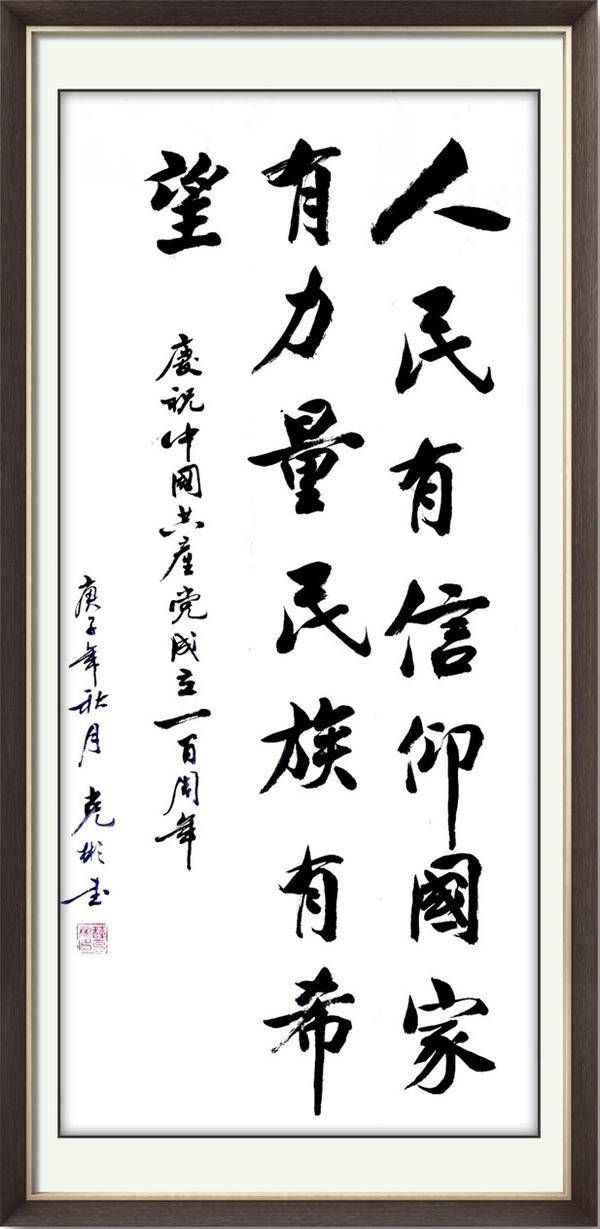 人民有信仰國家
有力量民族有希
望
慶祝中國共產党成立一百周年
庚子年秋月 克彬书